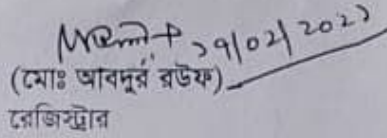 ২৭/০২/২০২২
(মোঃ আবদুর রউফ)
রেজিস্ট্রার